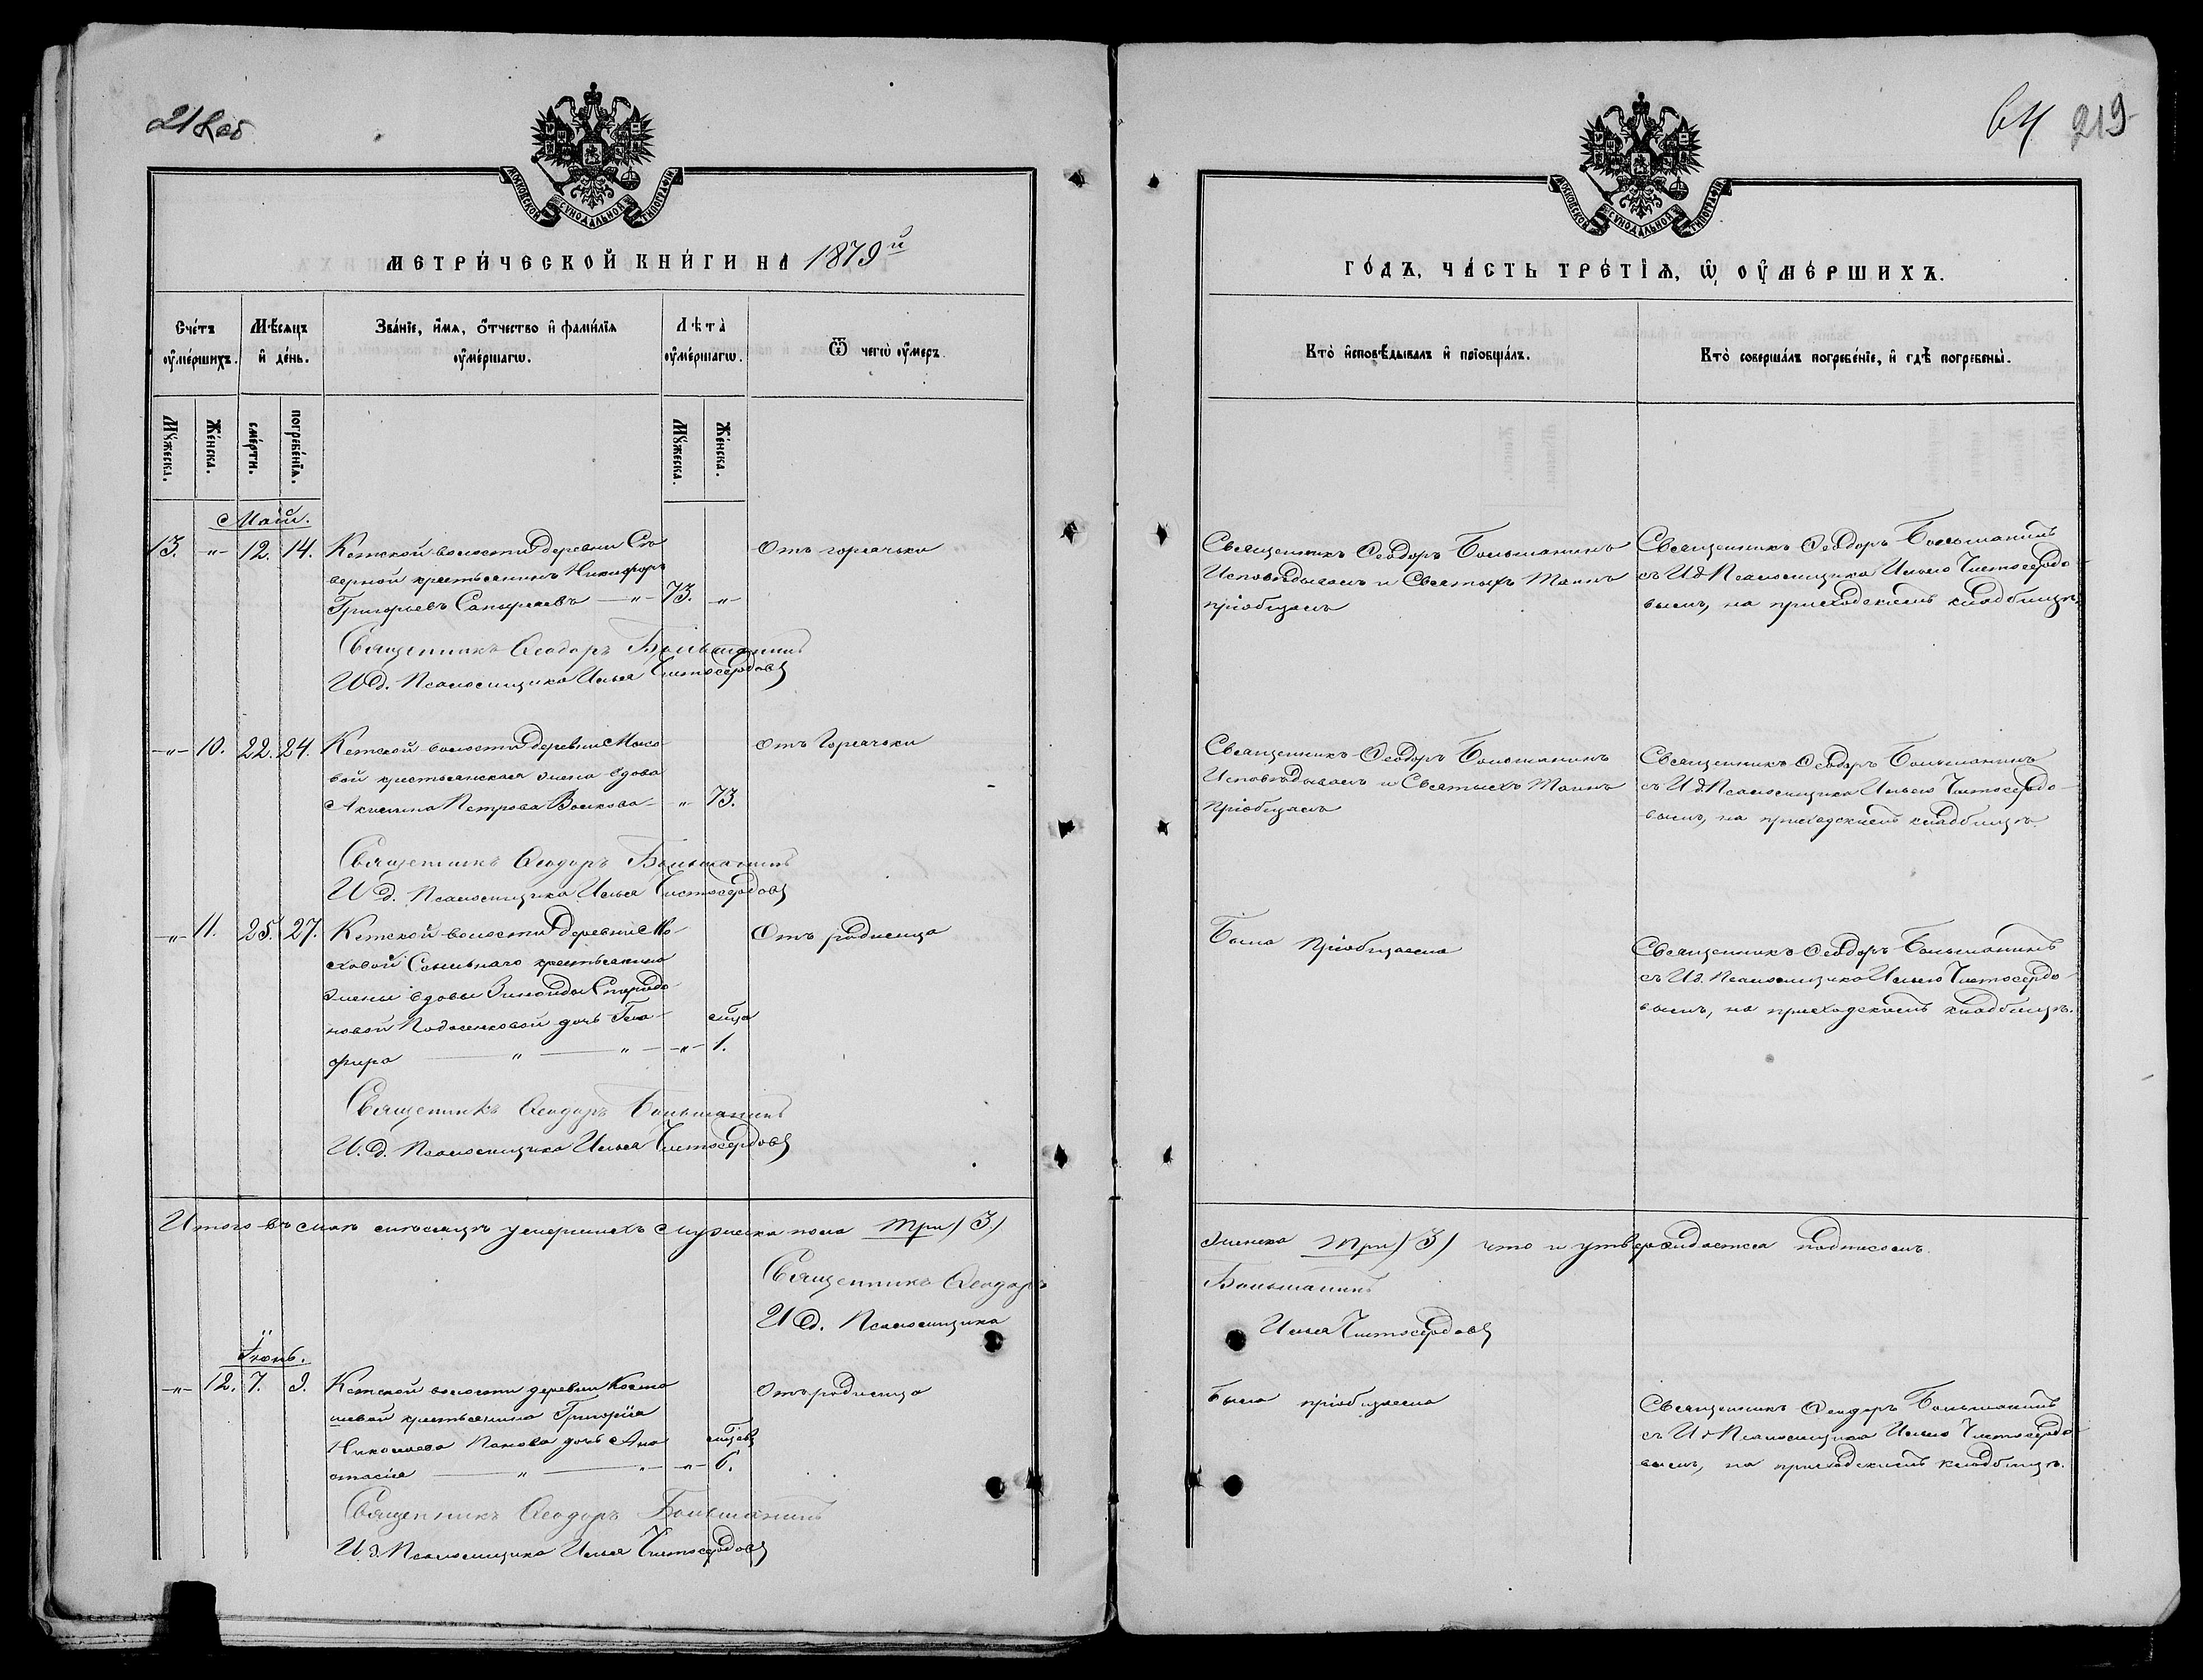 218 об
МОСКОВСКОЙ СУНОДАЛЬНОЙ ТИПОГРАФІИ
МЕТРИ́ЧЕСКОЙ КНИ́ГИ НА 1879й
Сче́тъ ᲂу҆ме́ршихъ.
Мѣ́сяцъ и҆ де́нь.
Зва́нїе, и҆́мѧ, ѻ҆́тчество и҆ фами́лїѧ ᲂу҆ме́ршагѡ.
Лѣта̀ ᲂу҆ме́ршагѡ.
Ѿ чегѡ̀ ᲂу҆́меръ.
Мꙋ́жеска.
Же́нска.
сме́рти.
погребе́нїѧ.
Мꙋ́жеска.
Же́нска.
Май.
13. -„- 12. 14. Кетской волости деревни Сѣ-
верной крестьянинъ Никифоръ
Григорьевъ -„- 73. -„-
Отъ горячки
Священникъ Ѳеодоръ Большанинъ
И.д. Псаломщика Илья Чистосердовъ
-„- 10. 22. 24. Кетской волости деревни Мохо-
вой крестьянская жена вдова
Акилина Петрова Волкова -„- 73.
Отъ Горячки
Священникъ Ѳеодоръ Большанинъ
И.д. Псаломщика Илья Чистосердовъ
-„- 11. 25. 27. Кетской волости деревни Мо-
ховой Сыльнаго крестьянина
жены вдовы Зинаиды Спиридо-
новой дочь Гла-
фира -„- мѣсяца 1.
Отъ родимца
Священникъ Ѳеодоръ Большанинъ
И.д. Псаломщика Илья Чистосердовъ
Итого въ маѣ мѣсяцѣ умершихъ мужеска пола три (3.)
Священникъ Ѳеодоръ
И.д. Псаломщика
Іюнь.
-„- 12. 7. 9. Кетской волости деревни
крестьянина Григорія
Николаева Панова дочь Ана-
стасія -„- мѣсяцевъ 6.
Отъ родимца
Священникъ Ѳеодоръ Большанинъ
И.д. Псаломщика Илья Чистосердовъ
64 219
МОСКОВСКОЙ СУНОДАЛЬНОЙ ТИПОГРАФІИ
ГО́ДЪ, ЧА́СТЬ ТРЕ́ТЇѦ, Ѡ҆ ОУ҆МЕ́РШИХЪ.
Кто̀ и҆сповѣ́дывалъ и҆ прїѡбща́лъ.
Кто̀ соверша́лъ погребе́нїе, и҆ гдѣ̀ погребены̀.
Священникъ Ѳеодоръ Большанинъ
Исповѣдывалъ и Святыхъ Таинъ
пріобщалъ
Священникъ Ѳеодоръ Большанинъ
съ И.д Псаломщика Ильею Чистосердо-
вымъ, на приходскомъ кладбищѣ.
Священникъ Ѳеодоръ Большанинъ
Исповѣдывалъ и Святыхъ Таинъ
Пріобщалъ
Священникъ Ѳеодоръ Большанинъ
съ И.д Псаломщика Ильею Чистосердо-
вымъ, на приходскомъ кладбищѣ.
Была Пріобщаема
Священникъ Ѳеодоръ Большанинъ
съ И.д. Псаломщика Ильею Чистосердо-
вымъ, на приходскомъ кладбищѣ.
женска три (3) что и утверждается подписомъ.
Большанинъ
Илья Чистосердовъ
Была пріобщаема
Священникъ Ѳеодоръ Большанинъ
съ И.д Псаломщика Ильею Чистосердо-
вымъ, на приходскомъ кладбищѣ.